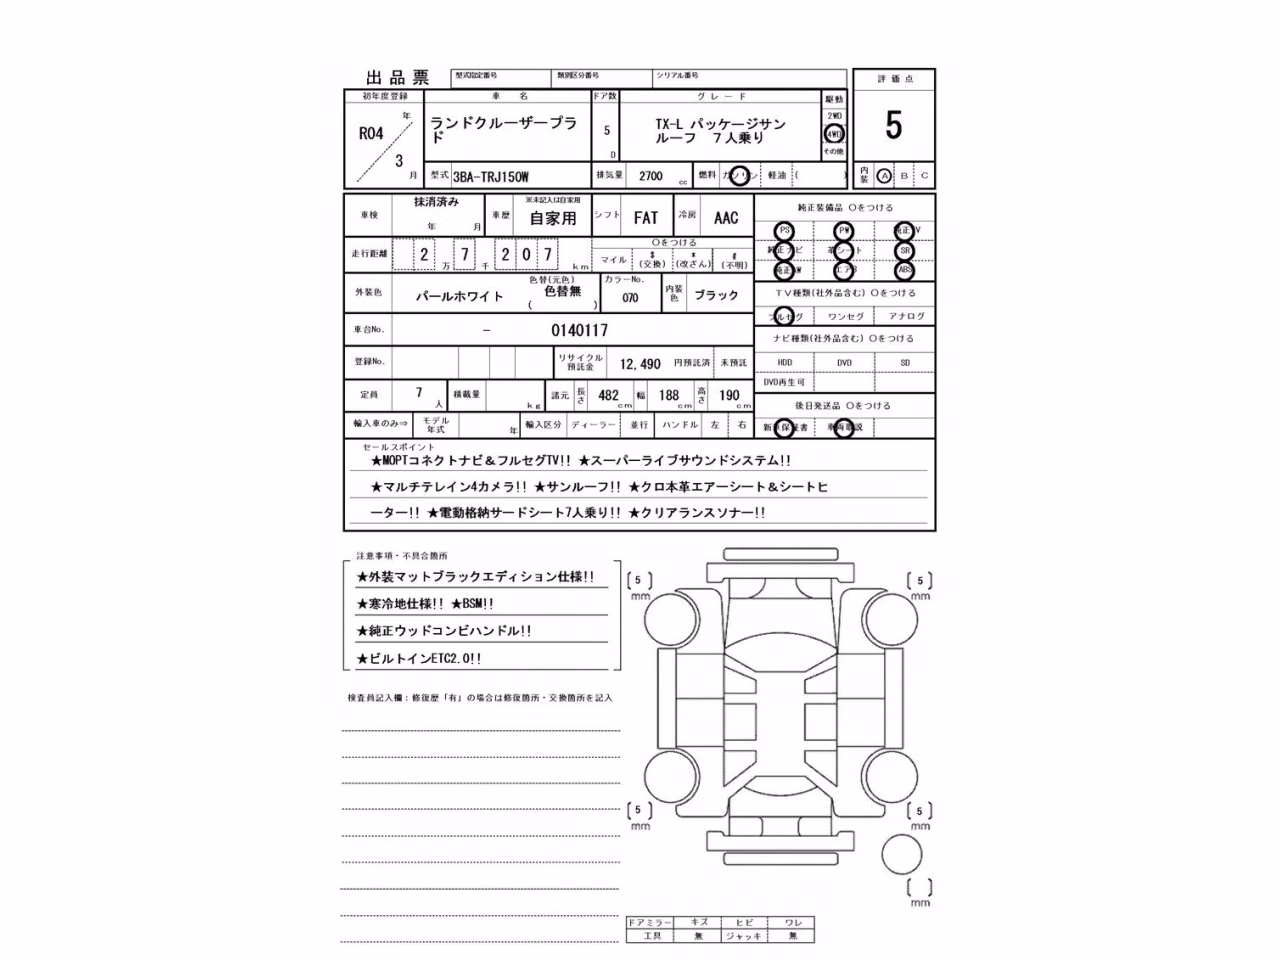 出品票 型式指定番号 類別区分番号 シリアル番号 評価点
初年度登録 車名 ドア数 グレード 駆動
R04 年 3 月 ランドクルーザープラド 5 D TX-L パッケージサンルーフ 7人乗り 2WD 4WD その他 5
型式 3BA-TRJ150W 排気量 2700 cc 燃料 ガソリン 軽油 ( ) 内装 A B C
車検 抹消済み 年 月 車歴 ※未記入は自家用 自家用 シフト FAT 冷房 AAC 純正装備品 ○をつける
PS PW 純正TV
走行距離 2 7 万 千 2 0 7 km ○をつける マイル $ (交換) * (改ざん) # (不明) 純正ナビ 革シート SR
純正AW エアB ABS
外装色 パールホワイト 色替(元色) 色替無 ( ) カラーNo. 070 内装色 ブラック TV種類(社外品含む) ○をつける
フルセグ ワンセグ アナログ
車台No. - 0140117 ナビ種類(社外品含む) ○をつける
登録No. リサイクル預託金 12,490 円預託済 未預託 HDD DVD SD
DVD再生可
定員 7 人 積載量 kg 諸元 長さ 482 cm 幅 188 cm 高さ 190 cm 後日発送品 ○をつける
輸入車のみ⇒ モデル年式 年 輸入区分 ディーラー 並行 ハンドル 左 右 新車保証書 車両取説
セールスポイント
★MOPTコネクトナビ&フルセグTV!! ★スーパーライブサウンドシステム!!
★マルチテレイン4カメラ!! ★サンルーフ!! ★クロ本革エアーシート&シートヒ
ーター!! ★電動格納サードシート7人乗り!! ★クリアランスソナー!!
注意事項・不具合箇所
★外装マットブラックエディション仕様!!
★寒冷地仕様!! ★BSM!!
★純正ウッドコンビハンドル!!
★ビルトインETC2.0!!
検査員記入欄:修復歴「有」の場合は修復箇所・交換箇所を記入
[5] mm [5] mm
[5] mm [5] mm
[ ] mm
ドアミラー キズ ヒビ ワレ
工具 無 ジャッキ 無